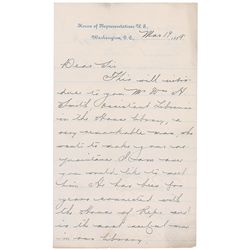 House of Representatives U.S.,
Washington, D.C., Mar 19,
Dear Sir
This will intro-
duce to you Mr Wm H
Smith Assistant Librarian
in the House Library, a
very remarkable man, who
wants to make your ac-
quaintance I am sure
you would like to meet
him. He has been for
years connected with
the House of Reps. and
is the most useful man
in our Library.